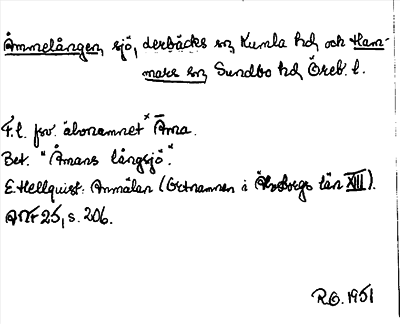 Åmmelången, sjö, Lerbäcks sn, Kumla hd, och Ham-
mars sn, Sundbo hd, Öreb. l.
F.l. fsv. ånamnet *Āma.
Bet. "Åmans långsjö".
E. Hellquist: Anmälan (Ortnamnen i Älvsborgs län XIII).
ANF 25, s. 206.
R.O. 1951